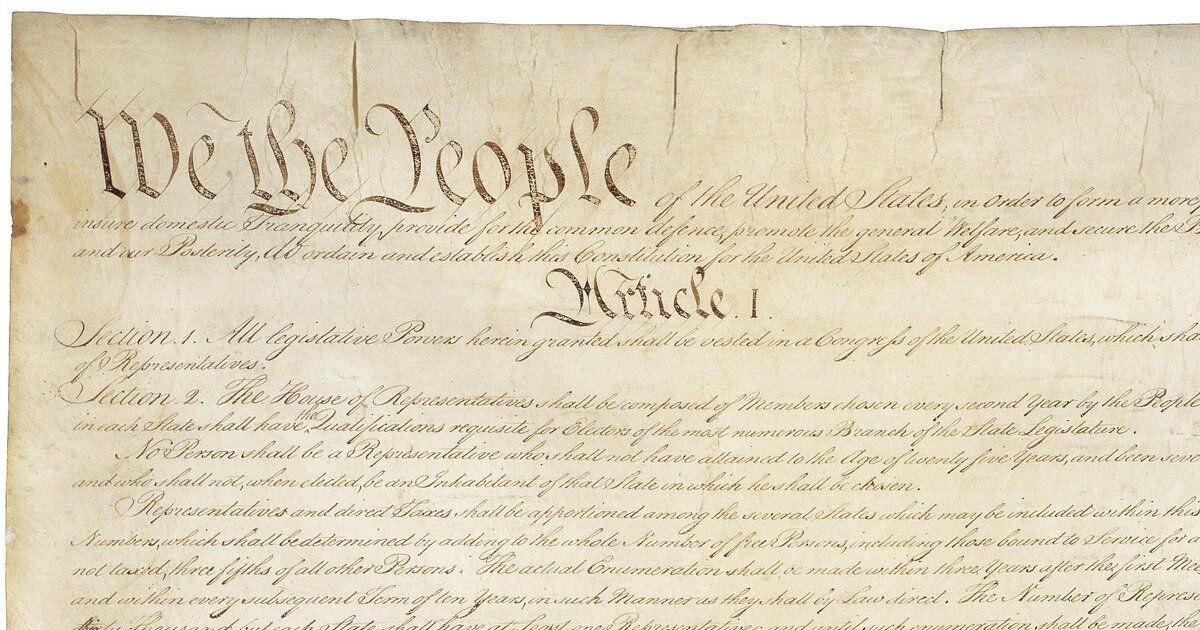 We the People of the United States, in Order to form a more
insure domestic Tranquility, provide for the common defence, promote the general Welfare, and secure the
and our Posterity, do ordain and establish this Constitution for the United States of America.
Article. I.
Section. 1. All legislative Powers herein granted shall be vested in a Congress of the United States, which sha
of Representatives.
Section. 2. The House of Representatives shall be composed of Members chosen every second Year by the People
in each State shall have the Qualifications requisite for Electors of the most numerous Branch of the State Legislature.
No Person shall be a Representative who shall not have attained to the Age of twenty five Years, and been seve
and who shall not, when elected, be an Inhabitant of that State in which he shall be chosen.
Representatives and direct Taxes shall be apportioned among the several States which may be included within this
Numbers, which shall be determined by adding to the whole Number of free Persons, including those bound to Service for a
not taxed, three fifths of all other Persons. The actual Enumeration shall be made within three Years after the first Mee
and within every subsequent Term of ten Years, in such Manner as they shall by Law direct. The Number of Represe
thirty Thousand, but each State shall have at Least one Representative; and until such enumeration shall be made, the